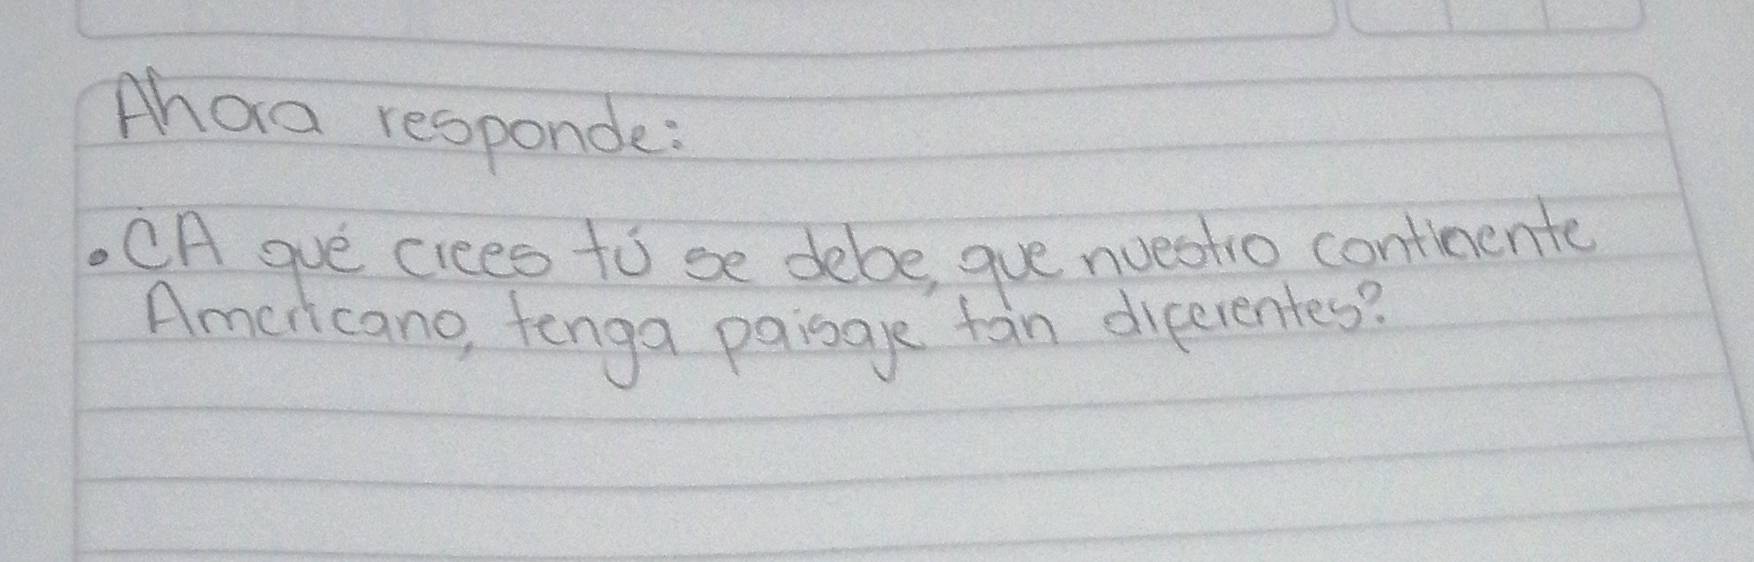 Ahora responde:
• ¿A qué crees tú se debe, que nuestro continente
Americano, tenga paisaje tan diferentes?